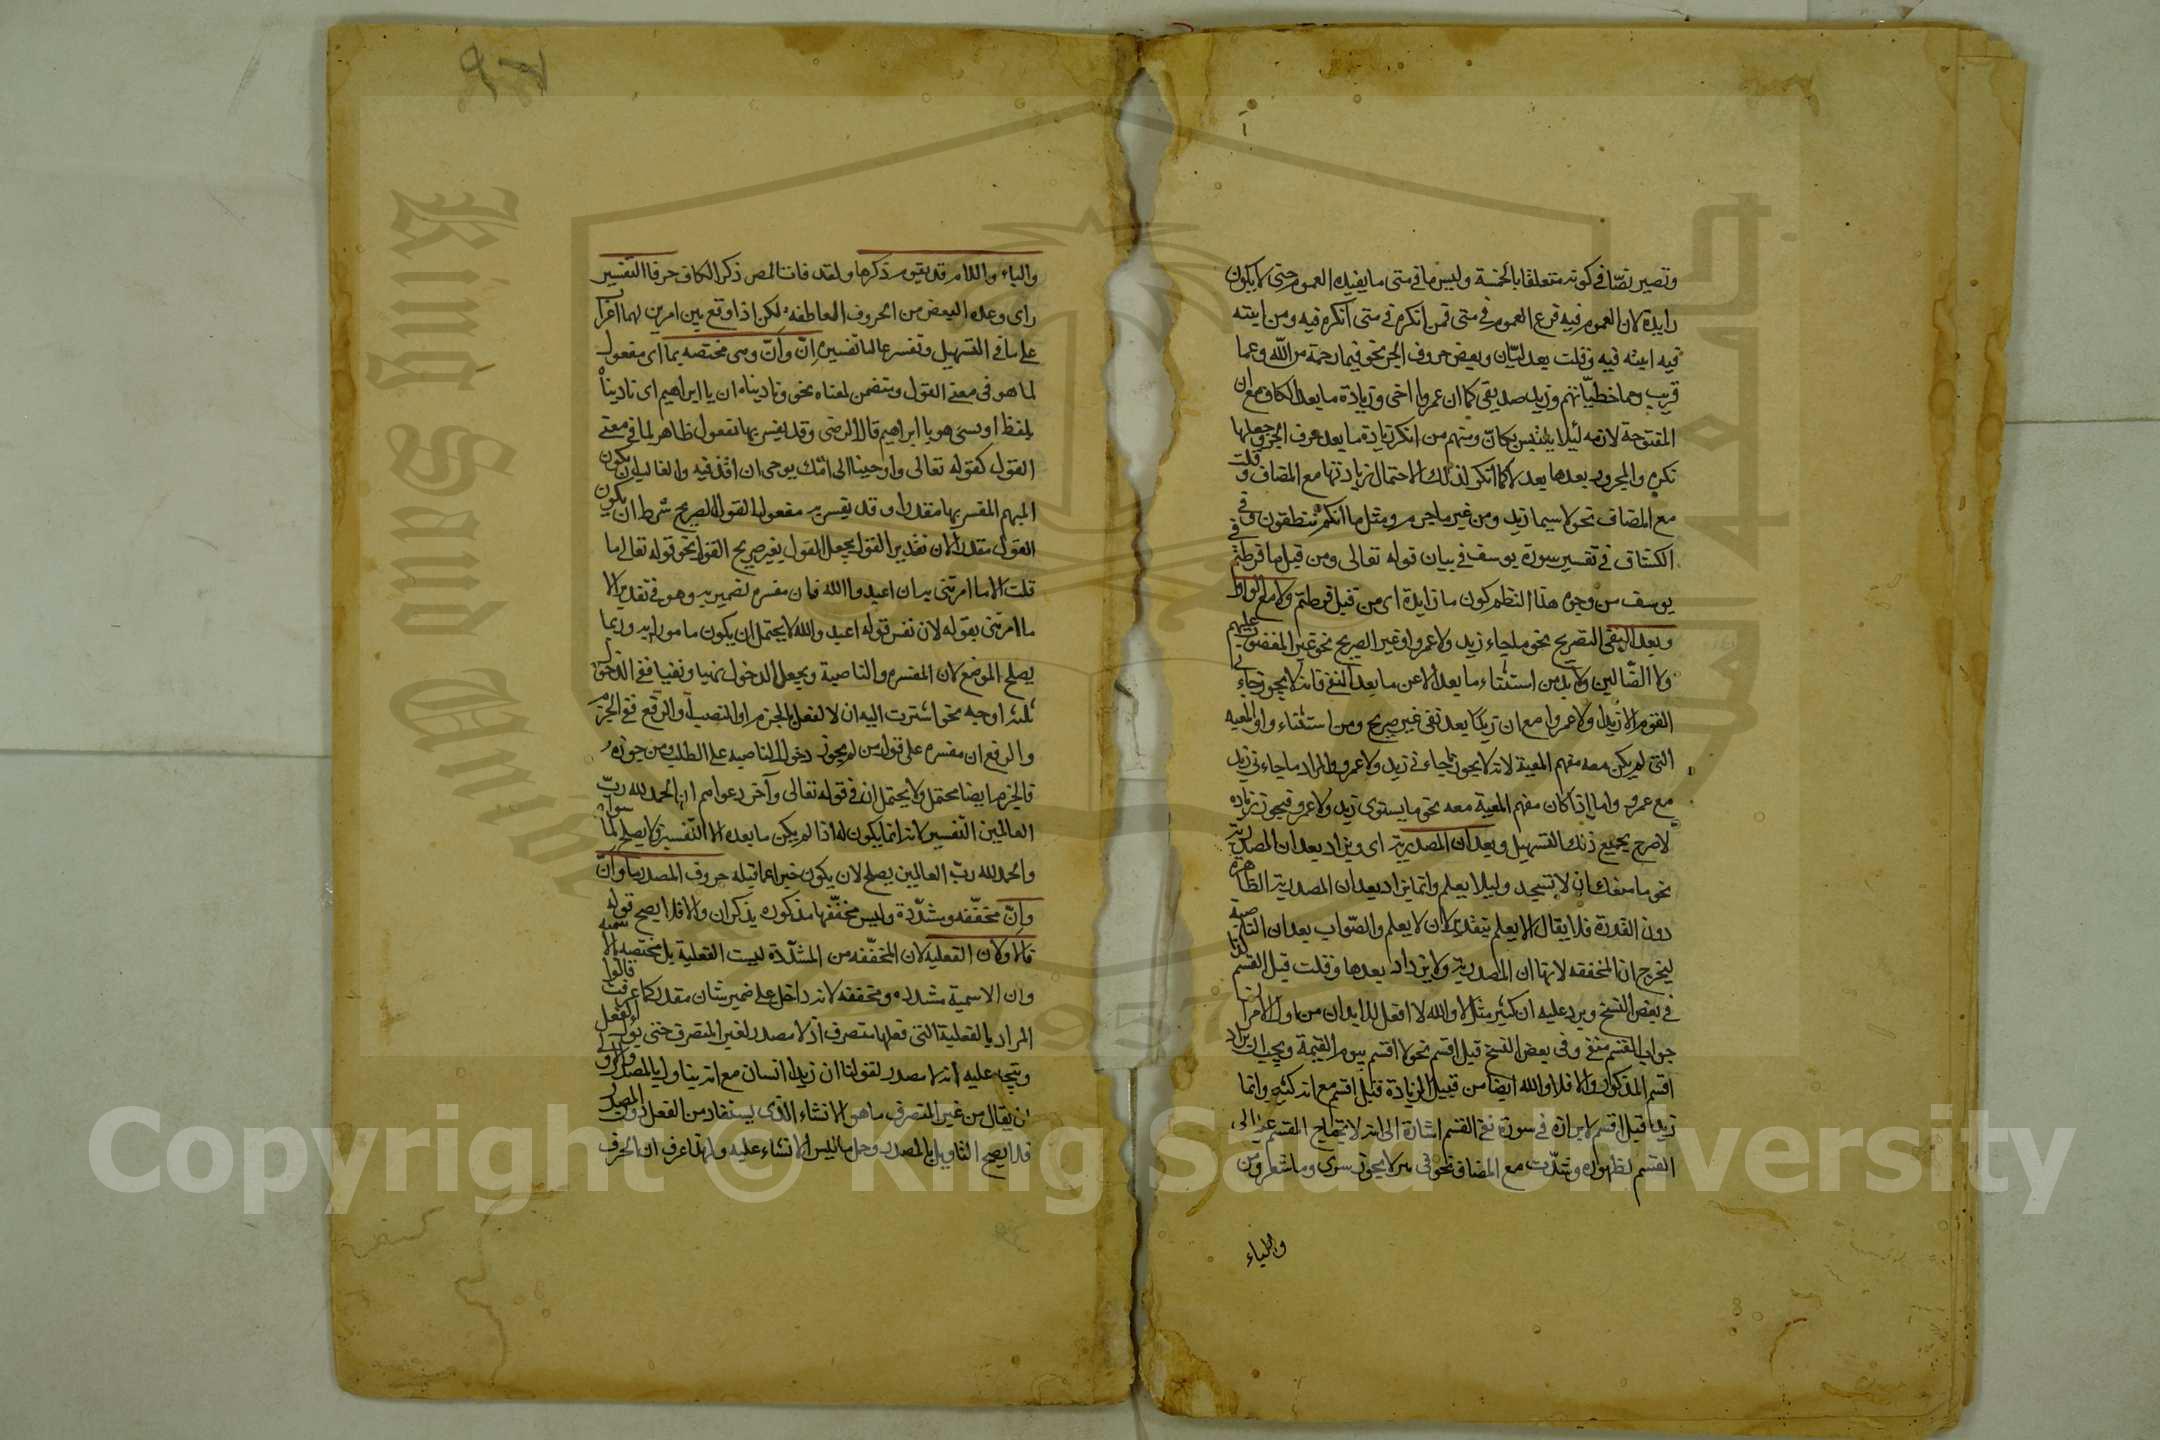 وتصير نصّا في كونه متعلقا بالخمسة وليس ما في متى ما يفيد العموم حتى لا يكون
زايدة لان العموم فيه فرع العموم في متى فمن انكره في متى انكره فيه ومن اثبته
فيه اثبته فيه وقلت بعد ليتان وبعض حروف الجر نحو فبما رحمة من الله وعما
قريب ومما خطيئاتهم وزيد صديقي كما ان عمروا اخي وزيادة ما بعد الكاف مع ان
المفتوحة لازمه لئلا يلتبس بكانّ ومنهم من انكر زيادة ما بعد حرف الجر وجعلها
نكرة والمجرور بعدها بعد لا كما انكر لذلك لاحتمال زيادتها مع المضاف وقلت
مع المضاف نحو لاسيما زيد ومن غير ما جرم ومثل ما انكم تنطقون وفي
الكشاف في تفسير سورة يوسف في بيان قوله تعالى ومن قبل ما فرطتم في
يوسف من وجوه هذا النظم كون ما زايدة اى من قبل فرطتم ولا مع الواو
وبعد النفي الصريح نحو ما جاء زيد ولا عمرو او غير الصريح نحو غير المغضوب عليهم
ولا الضّالين ولا بد من استثناء ما بعد الا عن ما بعد النفي فانه لا يجوز جاءني
القوم الا زيدا ولا عمروا مع ان زيدا بعد نفي غير صريح ومن استثناء واو المعيه
التي لم يكن معه مفهم المعية لانه لا يجوز ما جاءني زيد ولا عمرو والمراد ما جاءني زيد
مع عمرو واما اذا كان مفهم المعية معه نحو ما يستوى زيد ولا عمرو فيجوز زياده
لا صرح بجميع ذلك التسهيل وبعد ان المصدرية اى ويزاد بعد ان المصدرية
نحو ما منعك ان لا تسجد وليلا يعلم وانما يزاد بعد ان المصدرية الظاهره
دون المقدرة فلا يقال الا يعلم بتقدير لان لا يعلم والصّواب بعد ان الناصبة
ليخرج ان المخففه لانها ان المصدرية ولا يزداد بعدها وقلت قبل القسم
في بعض النسخ ويرد عليه ان كثير مثل لا والله لا افعل
جواب القسم منفي وفي بعض النسخ قبل اقسم نحو لا اقسم بيوم القيمة ويجب ان يراد
اقسم المذكور والا فلا والله ايضا من قبيل الزيادة قبل اقسم مع انه كثير وانما
زيد قبل اقسم لابرازه في سورة نفي القسم اشارة الى انه لا يحتاج القسم عليه الى
القسم لظهوره وشذّت مع المضاف نحو في بير لا يجوز سرى وما شعر ومن
والباء
والباء واللام قد يقوم ذكرها ولقد فات المص ذكر الكاف حرفا التفسير
راى وعده البعض من الحروف العاطفه لكن اذا وقع بين امرين لهما اعراب
على ما في التسهيل وتفسر عالما تفسيره انّ وانّ وهي مختصه بما اى مفعول
لما هو في معنى القول ومتضمن لمعناه نحو وناديناه ان يا ابراهيم اى ناديناه
بلفظ او بشئ هو يا ابراهيم قال الرضى وقد يفسر بها مفعول ظاهر لما في معنى
القول كقوله تعالى واوحينا الى امّك ما يوحى ان اقذفيه والغالب ان يكون
المبهم المفسر بها مقدرا وقد يفسر به مفعول القول الصريح شرط ان يكون
القول مقدرا لان تقدير القول يجعل القول بغير صريح القول نحو قوله تعالى ما
قلت لهم الا ما امرتنى به ان اعبدوا الله فان مفسره لضمير به وهو في تقدير الا
ما امرتنى بقوله لان نفس قوله اعبدوا الله لا يحتمل ان يكون مامورا به وربما
يصلح الموضع لان المفسره والناصبة ويجعل الدخول نهيا ونفيا ففي الدخول
ثلثة اوجه نحو اشترت اليه ان لا تفعل بالجزم او النصب او الرفع ففي الجزم
والرفع ان مفسره على قول من لم يجوز دخول الناصبه على الطلب ومن جوزه
فالجزم ايضا محتمل ولا يحتمل ان في قوله تعالى وآخر دعواهم ان الحمد لله ربّ
العالمين التفسير لانه انما يكون له اذا لم يكن ما بعده الا التفسير ولا يصلح لما سواه
والحمد لله ربّ العالمين يصلح لان يكون خبرا عما قبله حروف المصدر ما وانّ
وانّ مخففه ومشدّدة وليس مخفّفها مذكوره بذكر ان والا فلا يصح قوله
فالاولان الفعليه لان المخفّفه من المشدّدة ليست الفعلية بل مختصه بالاسمية
وان الاسمية مشدده ومخففه لانه داخل على ضمير شان مقدر كما عرفت قالوا
المراد بالفعلية التي فعلها متصرف اذ لا مصدر لغير المتصرف حتى يؤل الفعل
ويتجه عليه انه لا مصدر لقولنا ان زيدا انسان مع انه يتاول بالمصدر والاولى
ان يقال من غير المتصرف ما هو لانشاء الذي يستفاد من الفعل دون المصدر
فلا يصح التاويل بالمصدر وحل ما ليس لانشاء عليه ولهذا عرف ان الحرف
Copyright © King Saud University
King Saud University
1957